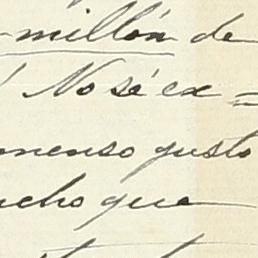 millón de
! No sé ex=
menso gusto
ucho que